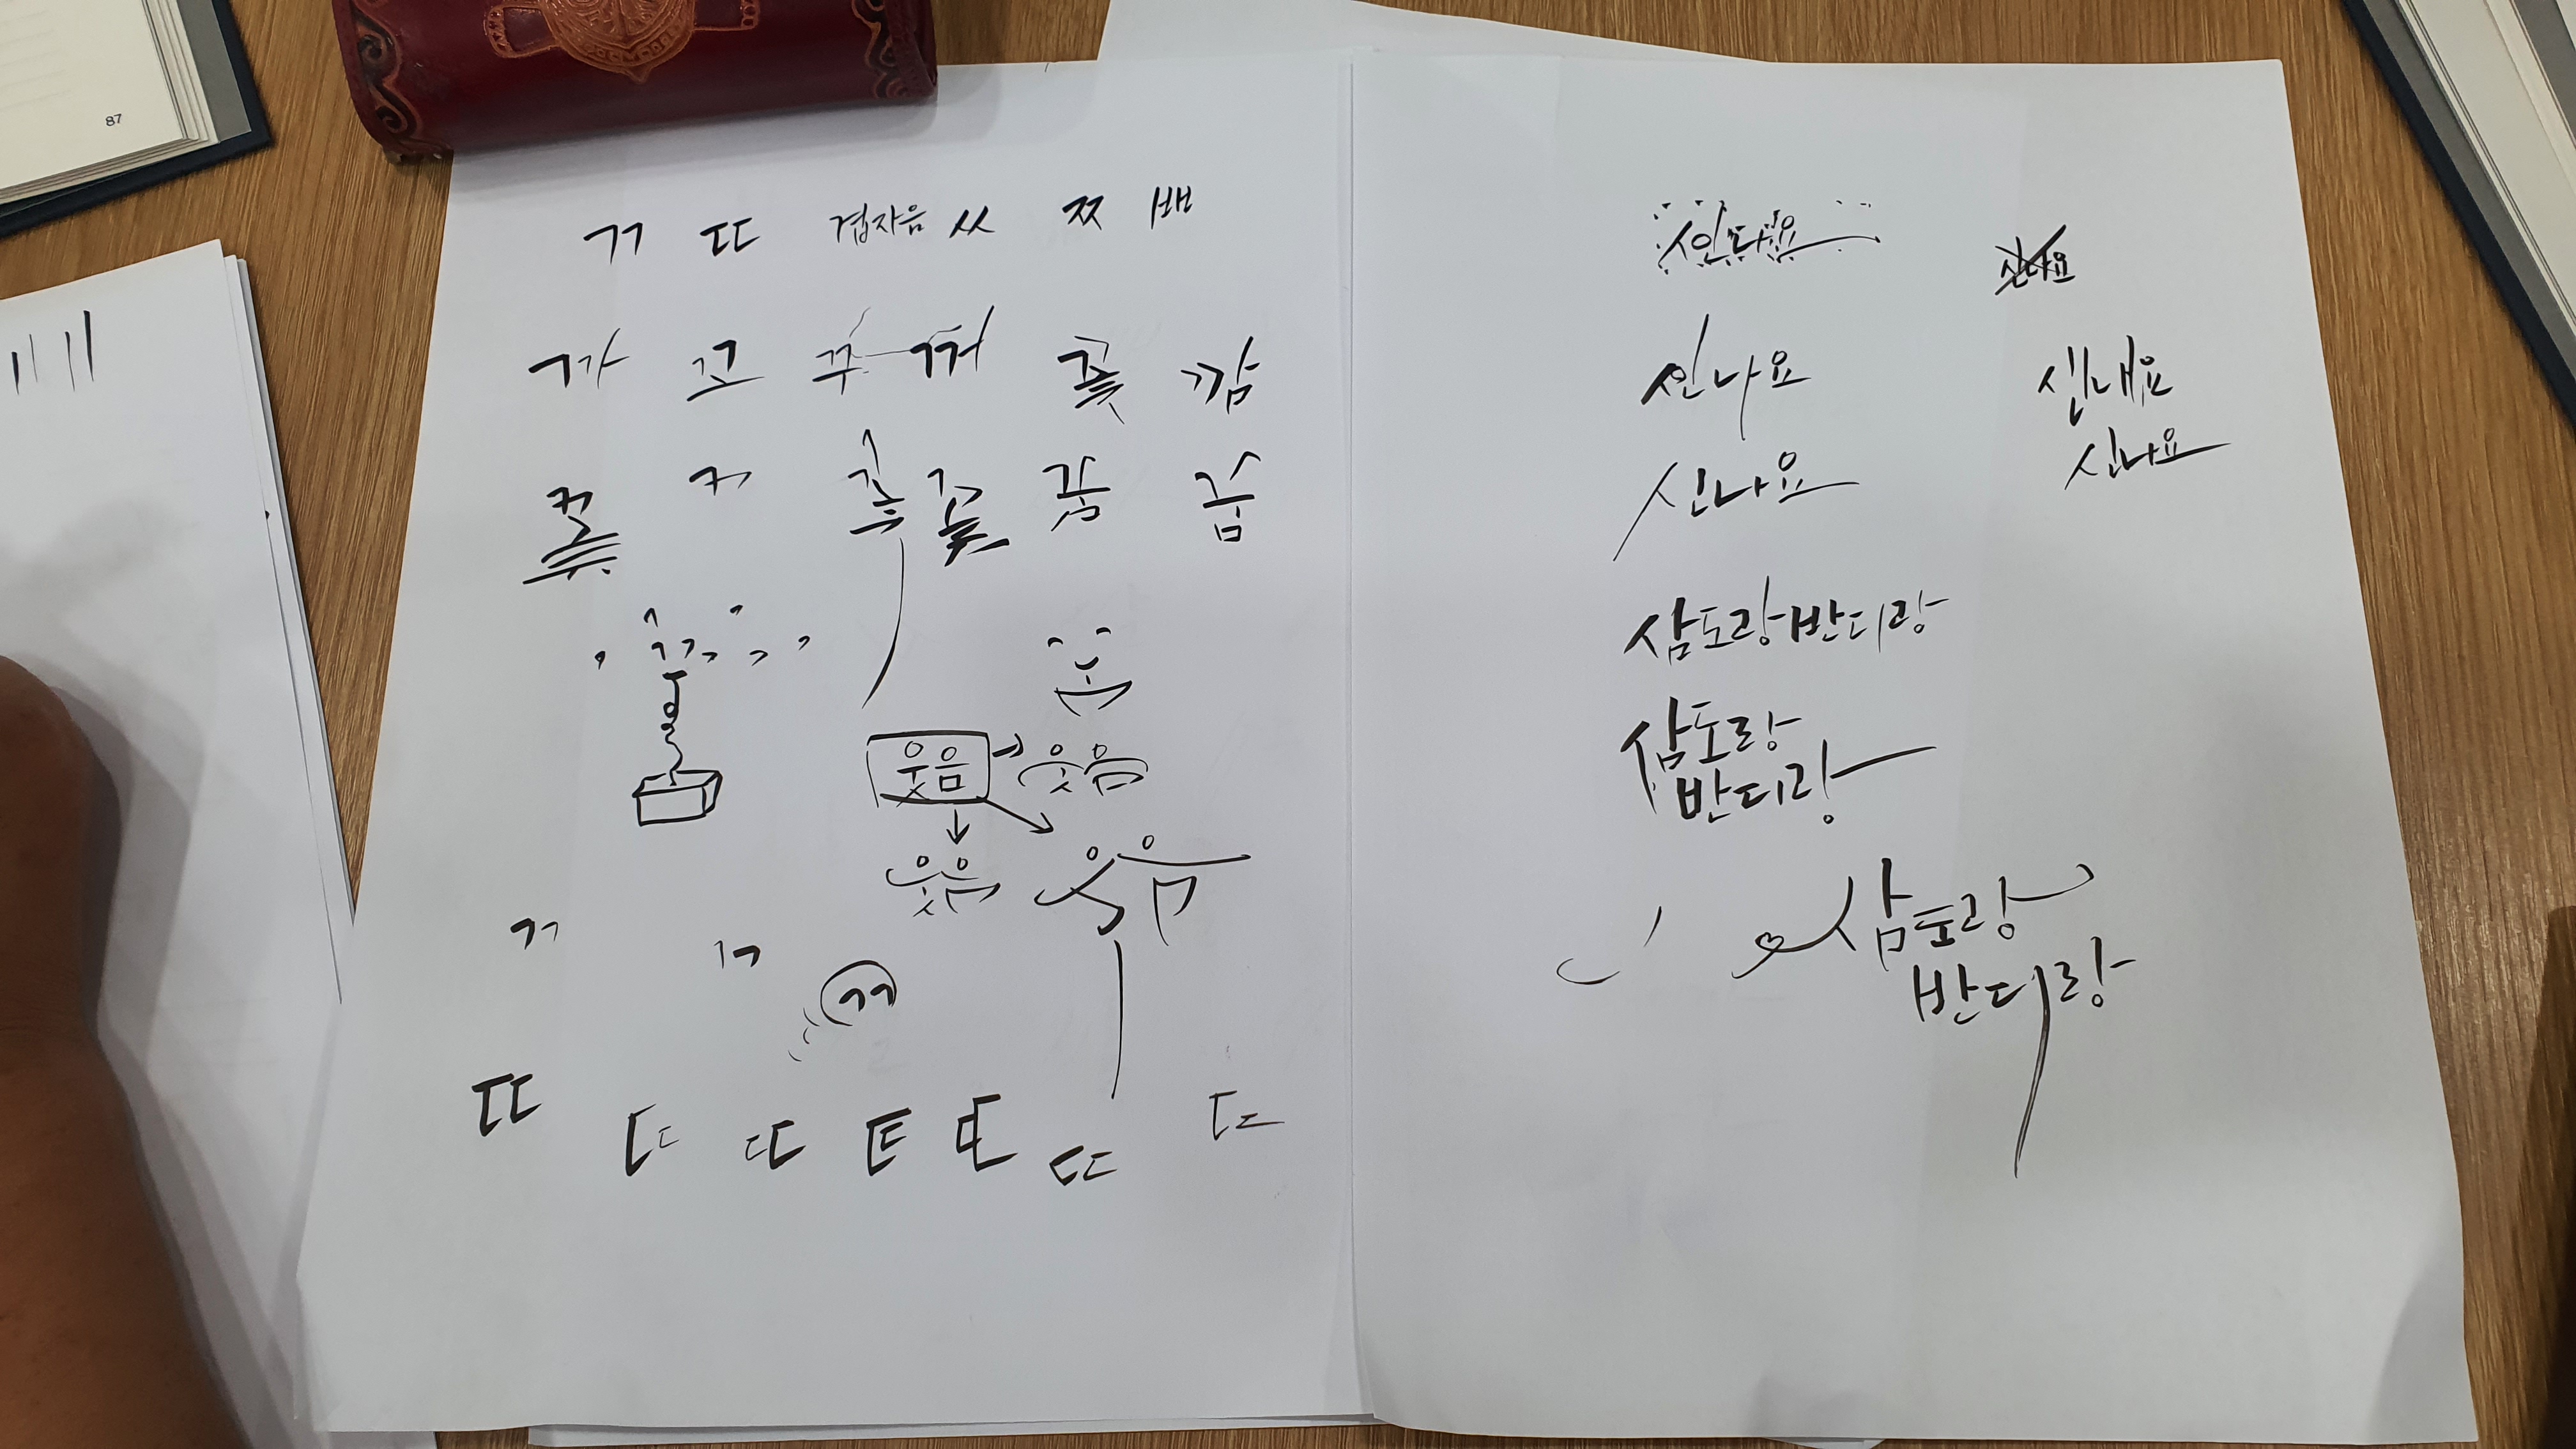 87
ㄲ ㄸ 겹자음 ㅆ ㅉ ㅃ
까 꼬 꾸 꺼 꽃 깜
꽃 꿈 꿈
웃음 웃음
웃음 웃음
ㄲ ㄲ ㄲ
ㄸ ㄸ ㄸ ㄸ ㄸ ㄸ ㄸ
신나요
신나요
신나요
신나요
신나요
삼도랑반디랑
삼도랑
반디랑
삼도랑
반디랑